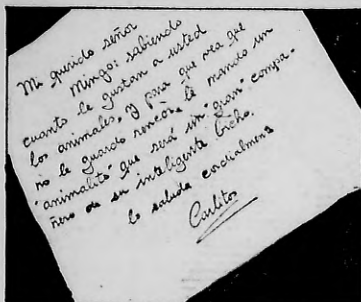 Mi querido señor
Mingo: sabiendo
cuanto le gustan a usted
los animales, y para que vea que
no le guardo rencor, le mando un
"animalito" que será un gran compa-
ñero de su inteligente bicho.
lo saluda cordialmente
Carlitos